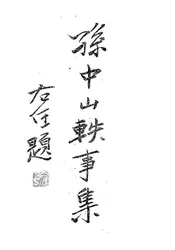 孫中山軼事集
右任題